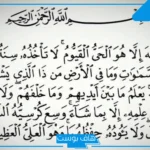 اللَّهِ الرَّحْمَٰنِ الرَّحِيمِ
إِلَّا هُوَ الْحَيُّ الْقَيُّومُ لَا تَأْخُذُهُ سِنَةٌ
السَّمَاوَاتِ وَمَا فِي الْأَرْضِ مَن ذَا الَّذِي يَشْفَعُ
يَعْلَمُ مَا بَيْنَ أَيْدِيهِمْ وَمَا خَلْفَهُمْ وَلَا
عِلْمِهِ إِلَّا بِمَا شَاءَ وَسِعَ كُرْسِيُّهُ
وَلَا يَئُودُهُ حِفْظُهُمَا وَهُوَ الْعَلِيُّ الْعَظِيمُ
هاف بوست